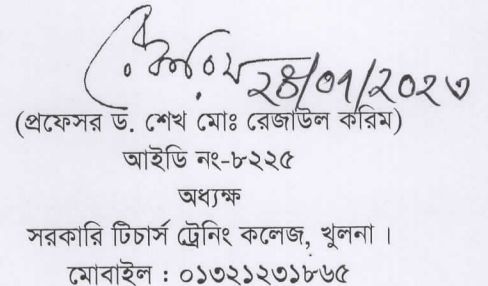 ২৪/০৭/২০২৩
(প্রফেসর ড. শেখ মোঃ রেজাউল করিম)
আইডি নং-৮২২৫
অধ্যক্ষ
সরকারি টিচার্স ট্রেনিং কলেজ, খুলনা ।
মোবাইল : ০১৩২১২৩১৮৬৫